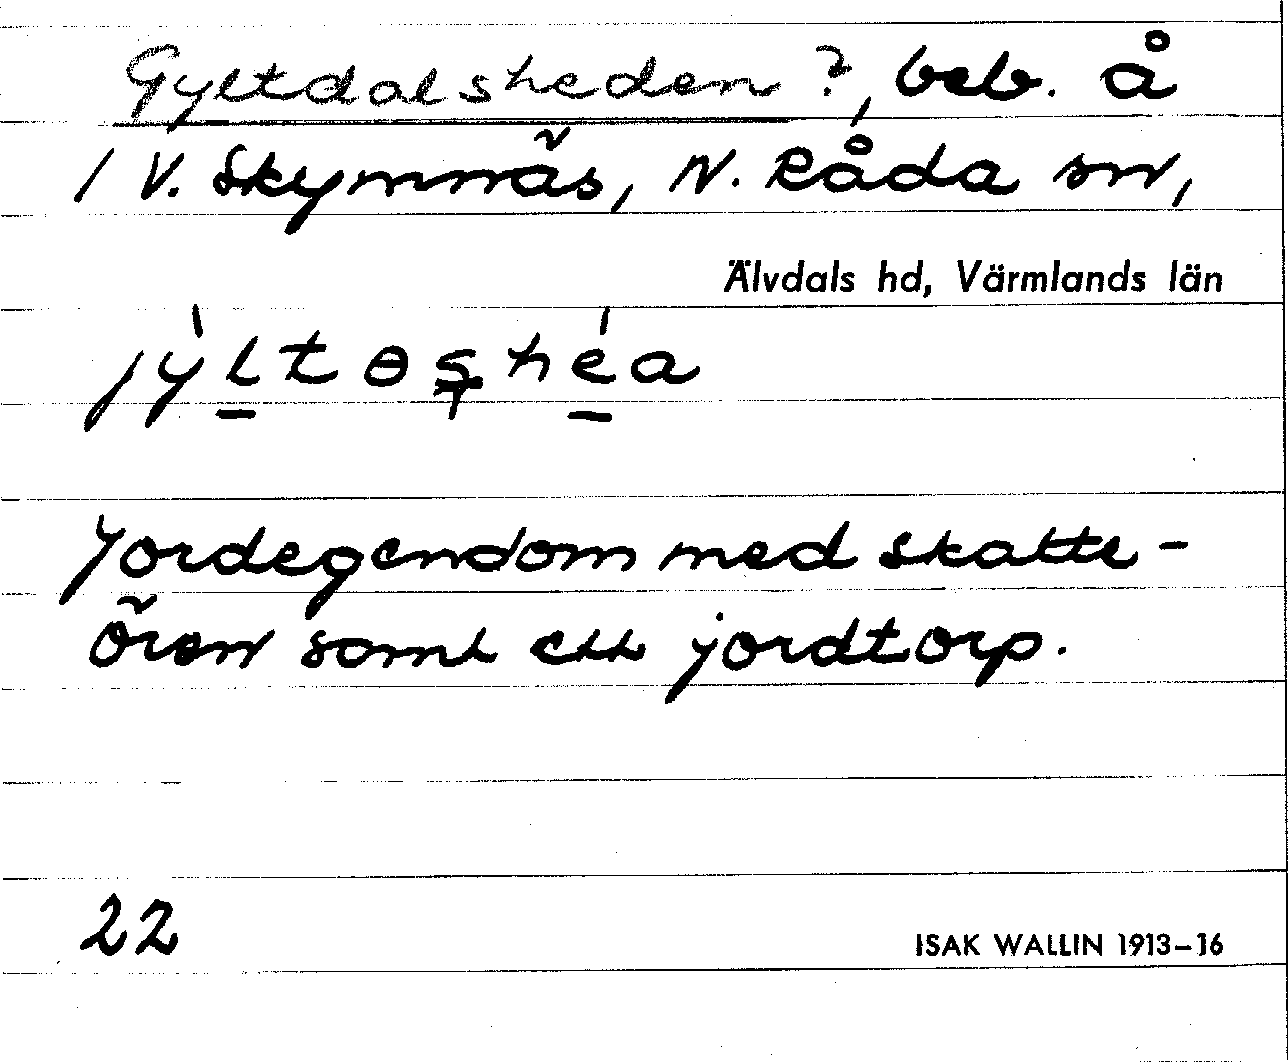 Gyltdalsheden ?, beb. å
1 V. Skymnäs, N. Råda sn,
Älvdals hd, Värmlands län
jỳltɵshéa
Jordegendom med skatte-
ören samt ett jordtorp.
22
ISAK WALLIN 1913–16